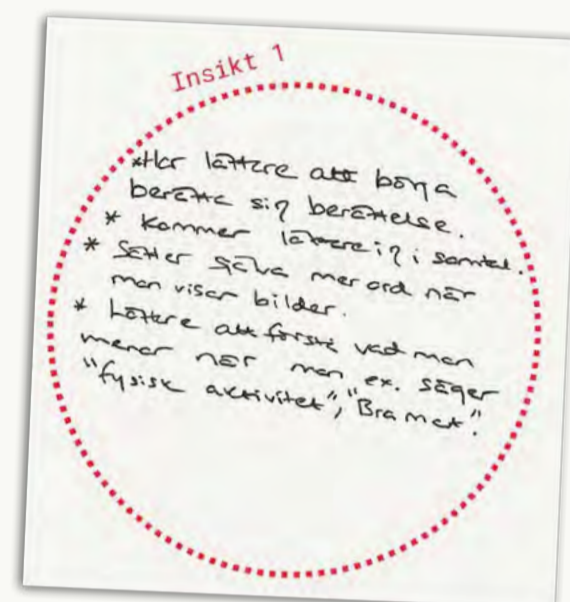 Insikt 1
*Har lättare att börja
berätta sin berättelse.
* Kommer lättare in i samtal.
* Sätter själva mer ord när
man visar bilder.
* Lättare att förstå vad man
menar när man ex. säger
"fysisk aktivitet", "Bra mat".